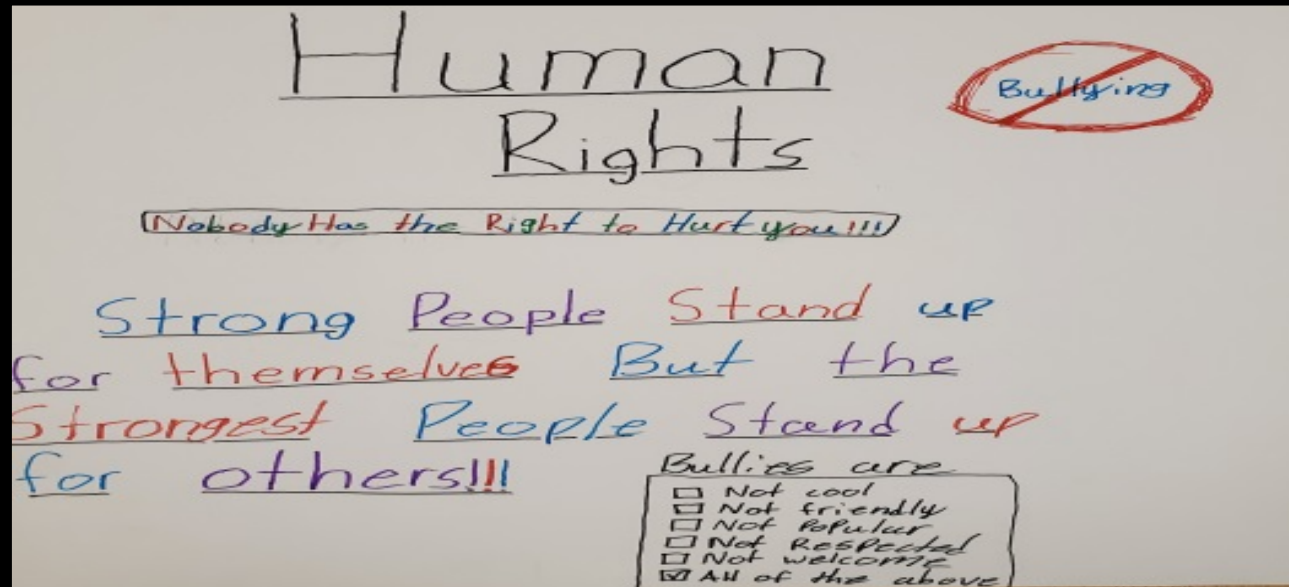 Human
Rights
Bullying
Nobody Has the Right to Hurt you!!!
Strong People Stand up
for themselves But the
Strongest People Stand up
for others!!!
Bullies are
Not cool
Not friendly
Not Popular
Not Respected
Not welcome
All of the above